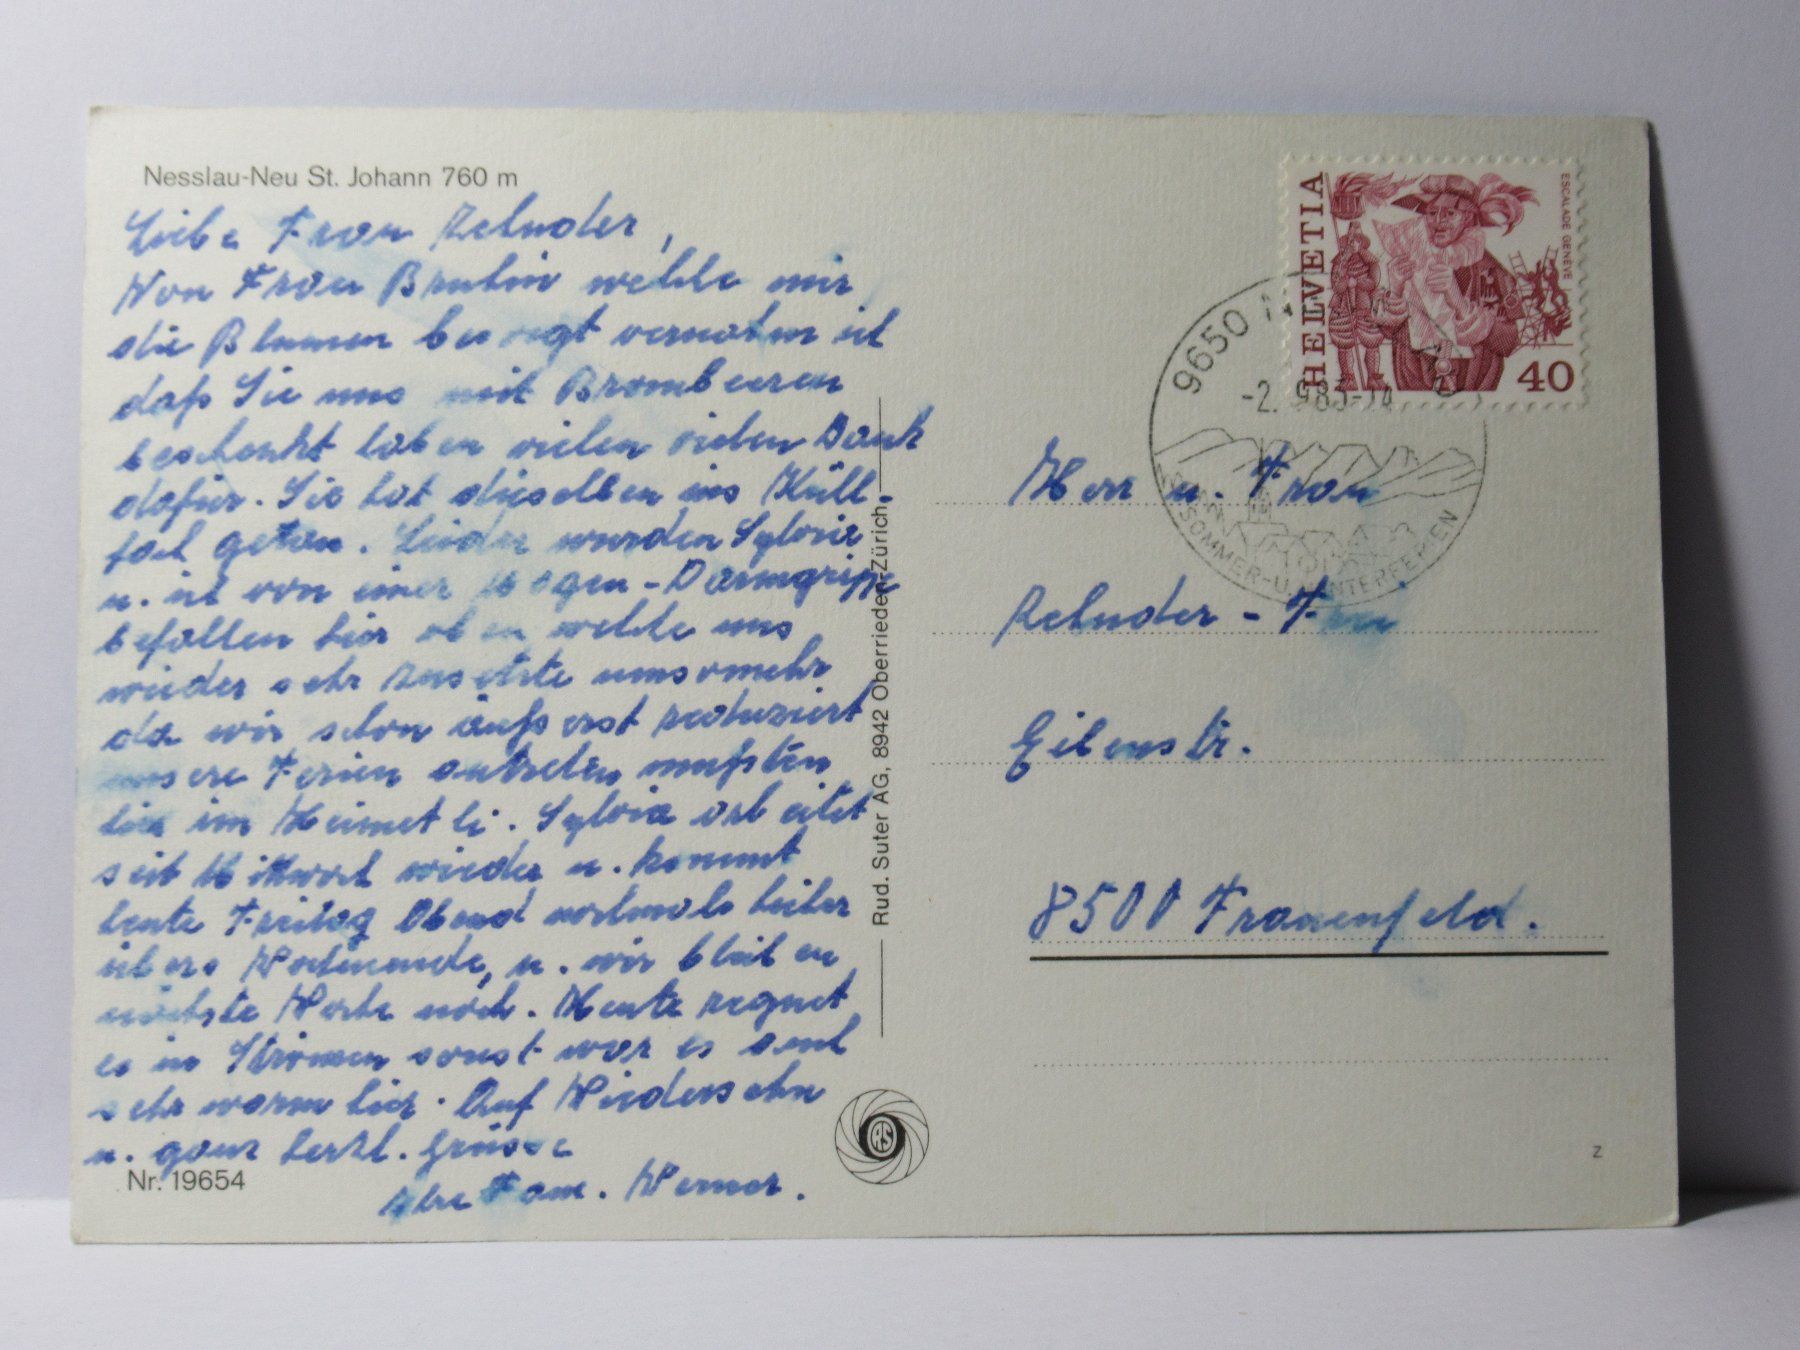 Nesslau-Neu St. Johann 760 m
Liebe Frau Zehnder,
Von Frau Bruhin welche mir
die Blumen besorgt vernahm ich
daß Sie uns mit Brombeeren
beschenkt haben vielen vielen Dank
dafür. Sie hat dieselben ins Kühl-
fach getan. Leider wurden Sylvia
u. ich von einer Magen-Darmgrippe
befallen hier oben welche uns
wieder sehr zusetzte umsomehr
da wir schon äußerst reduziert
unsere Ferien antreten mußten
hier im Heimetli. Sylvia arbeitet
seit Mittwoch wieder u. kommt
heute Freitag Abend nochmals hieher
übers Wochenende, u. wir bleiben
nächste Woche noch. Heute regnet
es in Strömen sonst war es auch
sehr warm hier. Auf Wiedersehn
u. ganz herzl. Grüsse
Ihre Fam. Werner.
Nr. 19654
Rud. Suter AG, 8942 Oberrieden-Zürich
RS
HELVETIA
ESCALADE GENÈVE
40
9650
-2. 9.83-14
SOMMER-U. WINTERFERIEN
Herr u. Frau
Zehnder - Frei
Eibenstr.
8500 Frauenfeld.
Z